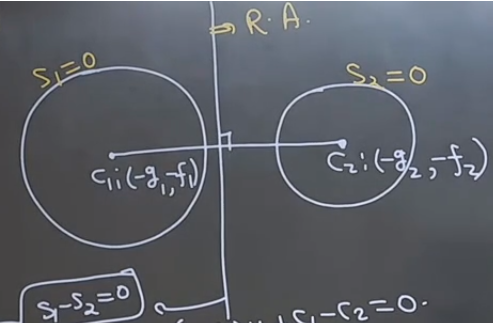 R.A.
S₁=0
S₂=0
C₁:(-g₁,-f₁)
C₂:(-g₂,-f₂)
S₁-S₂=0
C₁-C₂=0.